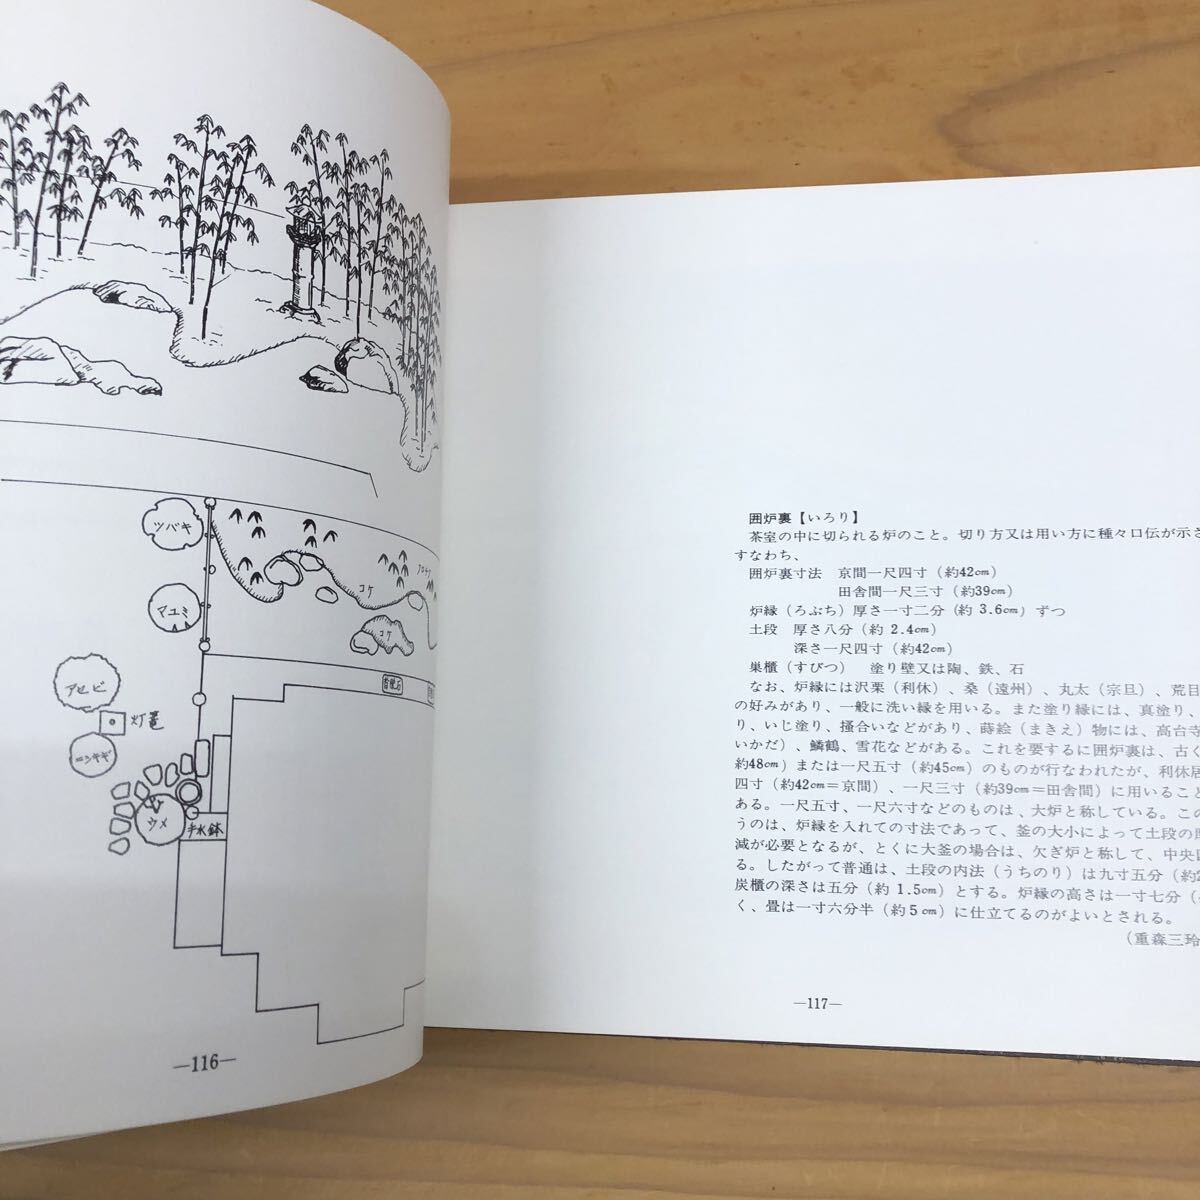 ツバキ
マユミ
アセビ
灯篭
ニシキギ
ウメ
手水鉢
コケ
コケ
沓脱石
—116—
囲炉裏【いろり】
茶室の中に切られる炉のこと。切り方又は用い方に種々口伝が示さ
すなわち、
囲炉裏寸法 京間一尺四寸(約42cm)
田舎間一尺三寸(約39cm)
炉縁(ろぶち)厚さ一寸二分(約 3.6cm)ずつ
土段 厚さ八分(約 2.4cm)
深さ一尺四寸(約42cm)
巣櫃(すびつ) 塗り壁又は陶、鉄、石
なお、炉縁には沢栗(利休)、桑(遠州)、丸太(宗旦)、荒目
の好みがあり、一般に洗い縁を用いる。また塗り縁には、真塗り、
り、いじ塗り、掻合いなどがあり、蒔絵(まきえ)物には、高台寺
いかだ)、鱗鶴、雪花などがある。これを要するに囲炉裏は、古く
約48cm)または一尺五寸(約45cm)のものが行なわれたが、利休居
四寸(約42cm=京間)、一尺三寸(約39cm=田舎間)に用いること
ある。一尺五寸、一尺六寸などのものは、大炉と称している。この
うのは、炉縁を入れての寸法であって、釜の大小によって土段の厚
減が必要となるが、とくに大釜の場合は、欠ぎ炉と称して、中央四
る。したがって普通は、土段の内法(うちのり)は九寸五分(約2
炭櫃の深さは五分(約 1.5cm)とする。炉縁の高さは一寸七分(
く、畳は一寸六分半(約5cm)に仕立てるのがよいとされる。
(重森三玲
—117—